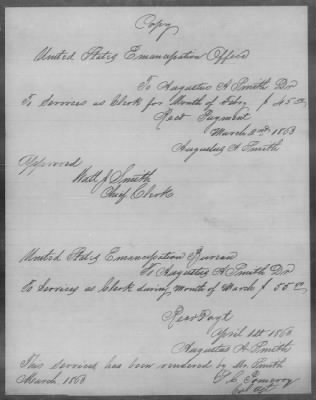 Copy
United States Emancipation Office
To Augustus A Smith Dr
To Services as Clerk for Month of Feby $45.00
Recd Payment
March 2nd 1863
Augustus A Smith
Approved
Chief Clerk
United States Emancipation Bureau
To Augustus A Smith Dr
To Services as Clerk during Month of March $55.00
Recd Payt
April 1st 1863
Augustus A Smith
This Services has been rendered by Mr. Smith
March 1863
S. C. Pomeroy